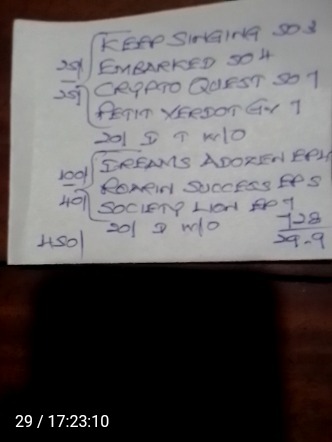 KEEP SINGING SO 3
25/ EMBARKED SO 4
25/ CRYPTO QUEST SO 7
PETIT VERDOT GW 7
20/ D T W/O
DREAMS ADOZEN EP4
100/
40/ ROARIN SUCCESS EP 5
SOCIETY LION EP 9
20/ D W/O 728
450/ 29.9
29 / 17:23:10